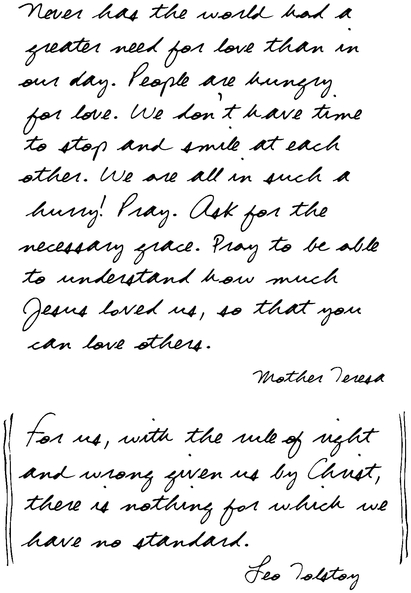 Never has the world had a
greater need for love than in
our day. People are hungry
for love. We don't have time
to stop and smile at each
other. We are all in such a
hurry! Pray. Ask for the
necessary grace. Pray to be able
to understand how much
Jesus loved us, so that you
can love others.
Mother Teresa
For us, with the rule of right
and wrong given us by Christ,
there is nothing for which we
have no standard.
Leo Tolstoy